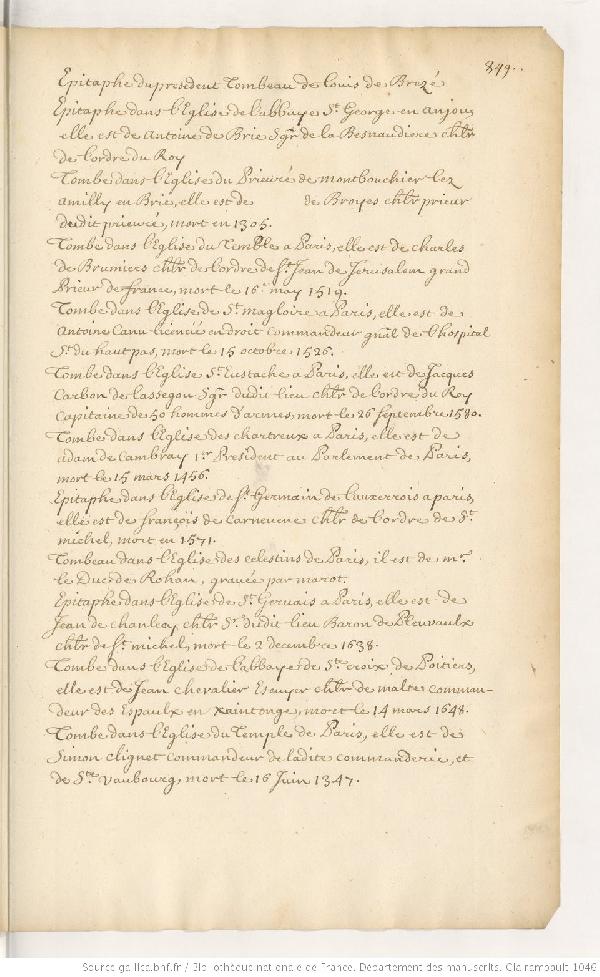 849.
Epitaphe du president Tombeau de Louis de Brezé
Epitaphe dans l'Eglise de l'abbaye St. George en anjou,
elle est de Antoine de Brie Sgr de la Besnaudiere chlr
de l'ordre du Roy
Tombe dans l'Eglise du Prieuré de montbouchier lez
amilly en Brie, elle est de de Broyes chlr prieur
dudit prieuré, mort en 1305.
Tombe dans l'Eglise du Temple a Paris, elle est de charles
de Brumiers chlr de l'ordre de St. Jean de Jerusalem grand
Prieur de france, mort le 16e may 1519.
Tombe dans l'Eglise de St. magloire a Paris, elle est de
Antoine Canu licencié en droit commandeur gnãl de l'hospital
St. du haut pas, mort le 15 octobre 1526.
Tombe dans l'Eglise St. Eustache a Paris, elle est de Jacques
Carbon de Lassegon Sgr dudit lieu chlr de l'ordre du Roy
Capitaine de 50 hommes d'armes, mort le 26 septembre 1580.
Tombe dans l'Eglise des chartreux a Paris, elle est de
adam de Cambray 1er President au Parlement de Paris,
mort le 15 mars 1456.
Epitaphe dans l'Eglise de St. Germain de l'auxerrois a paris,
elle est de françois de chlr de l'ordre de St.
michel, mort en 1571.
Tombeau dans l'Eglise des celestins de Paris, il est de mr.
le Duc de Rohan, gravée par marot.
Epitaphe dans l'Eglise de St. Gervais a Paris, elle est de
Jean de chanlecy chlr Sr. dudit lieu Baron de Pleuvaulx
chlr de St. michel, mort le 2 decembre 1638.
Tombe dans l'Eglise de l'abbaye de Ste. croix de Poitiers,
elle est de Jean chevalier Escuyer chlr de malte comman-
deur des Espaulx en Xaintonge, mort le 14 mars 1648.
Tombe dans l'Eglise du Temple de Paris, elle est de
Simon clignet commandeur de ladite commanderie, et
de Ste. Vaubourg, mort le 16 Juin 1347.
Source gallica.bnf.fr / Bibliothèque nationale de France. Département des manuscrits. Clairambault 1046